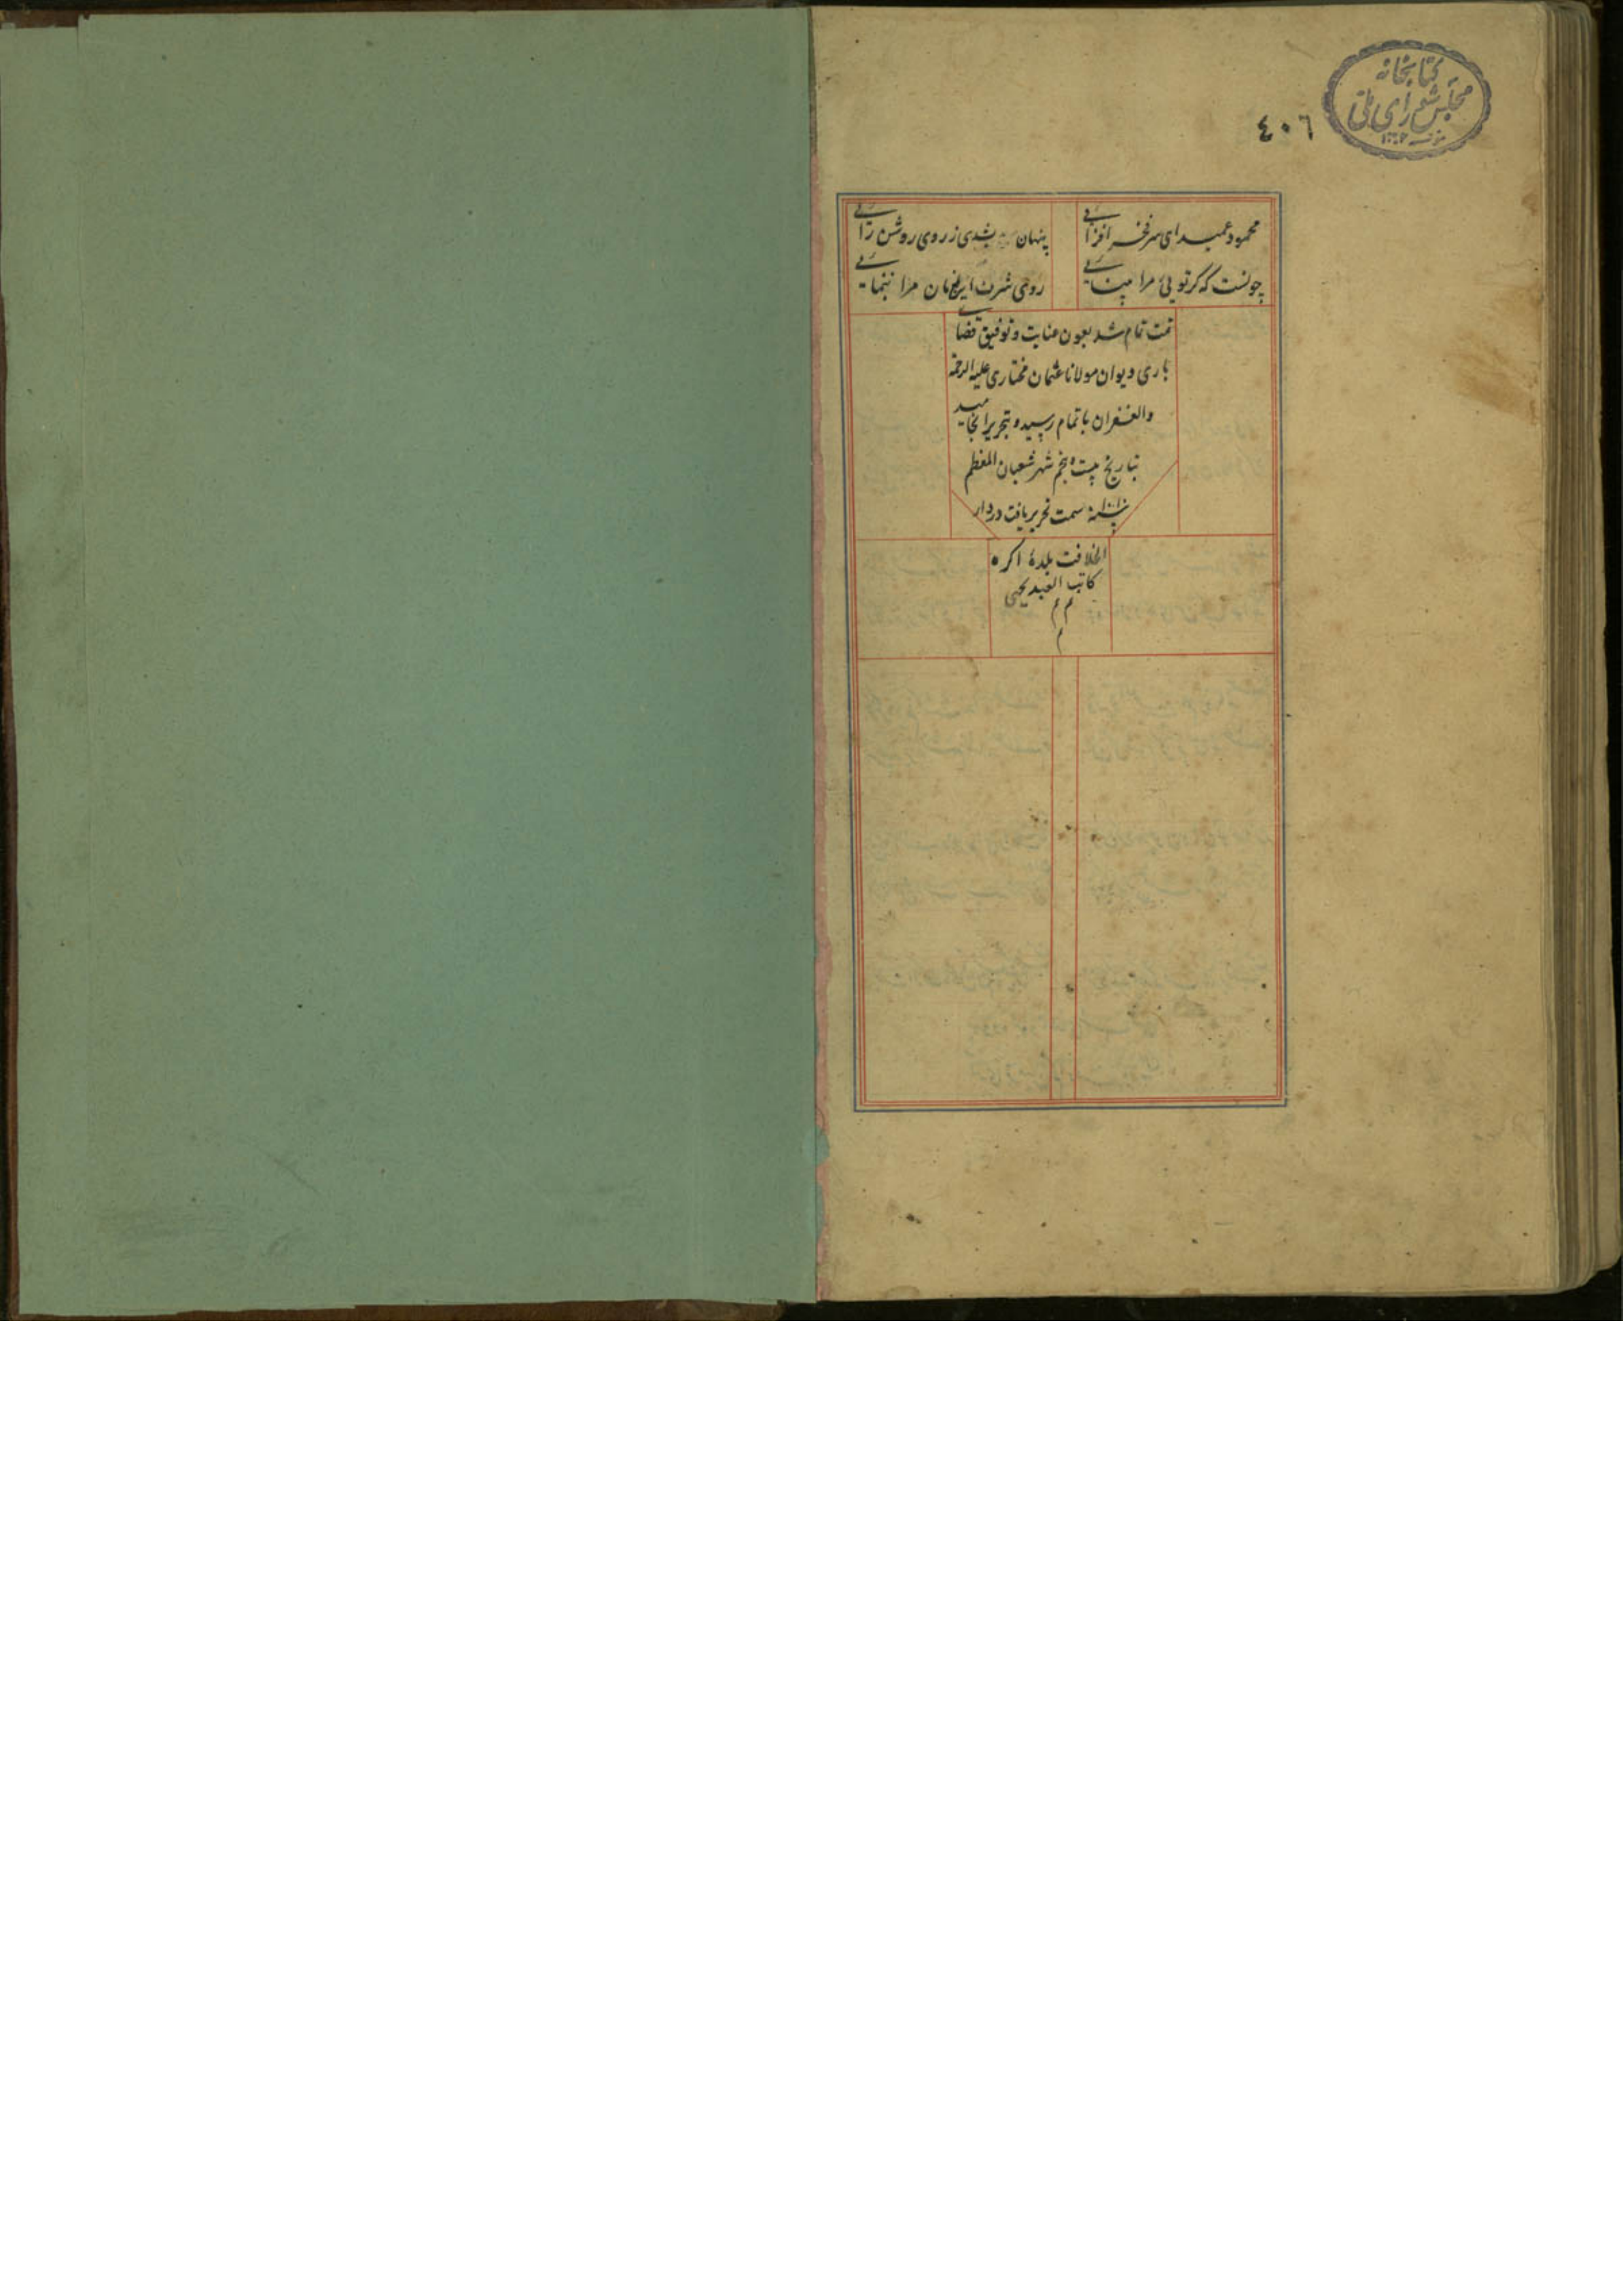 کتابخانه
مجلس شورای ملی
٤٠٦
محمود عمید ای سر فخر افزایی
پنهان شدی ز روی روشن رایی
چونست که کر تو یی مرا
روی شرف مرا ننمایی
تمت تمام شد بعون عنایت و توفیق قضای
باری دیوان مولانا عثمان مختاری علیه الرحمة
والغفران باتمام رسید و بتحریر انجامید
بتاریخ بیست و پنجم شهر شعبان المعظم
سنه سمت تحریر یافت در دار
الخلافت بلدهٔ اکره
کاتب العبد یحیی
م م
م